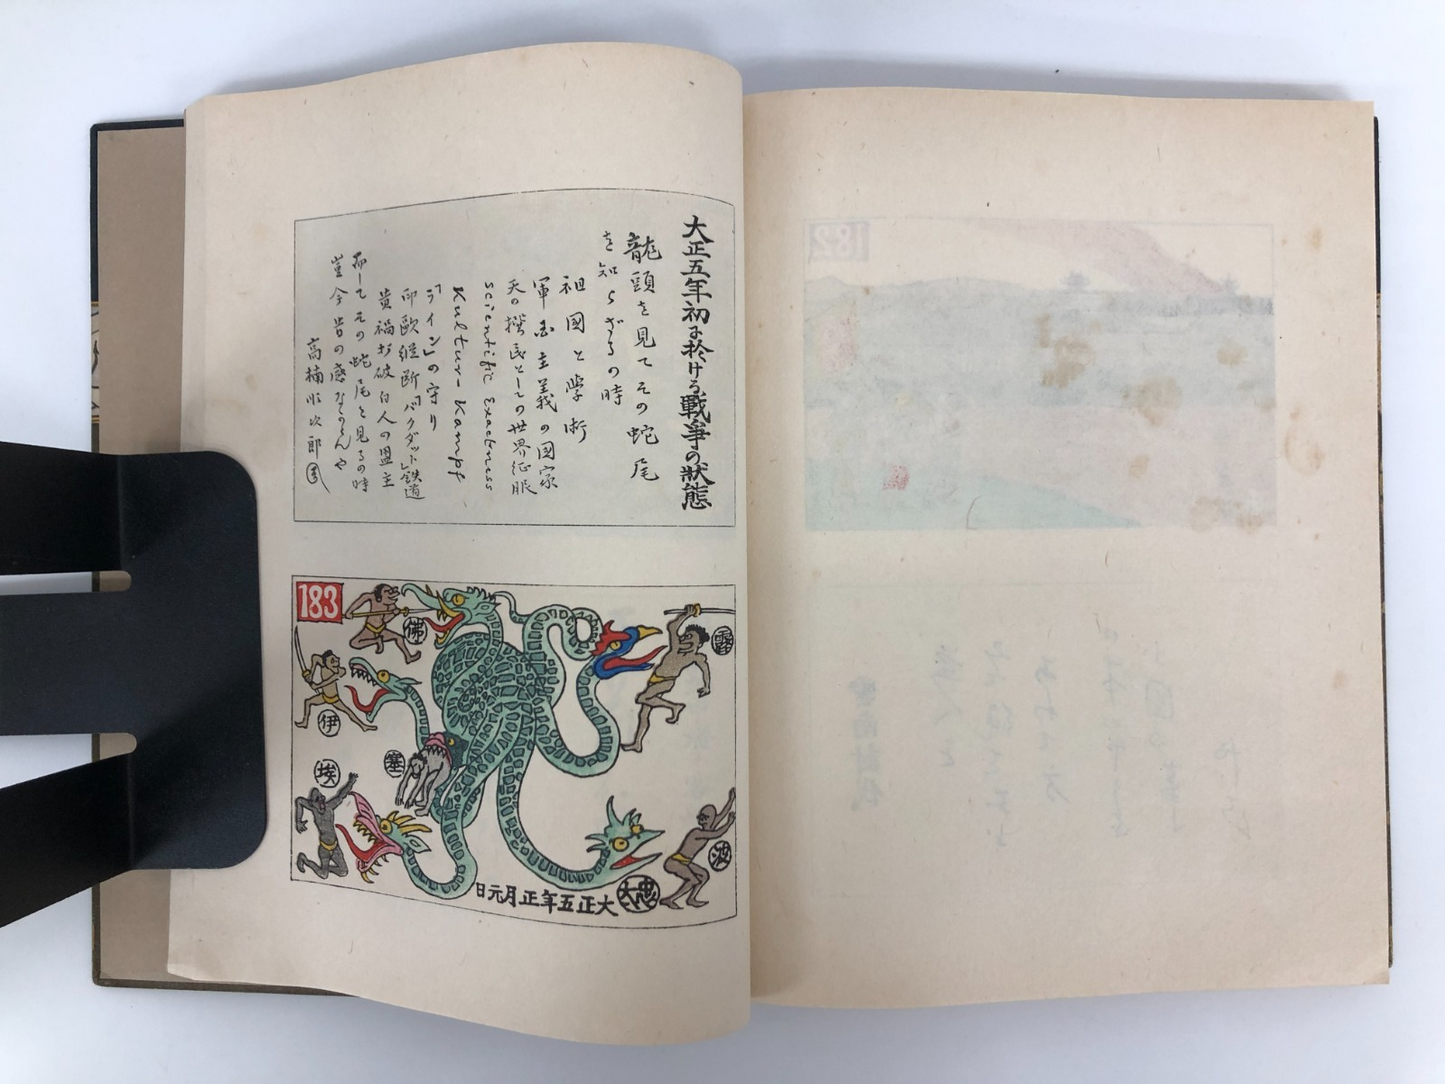 大正五年初に於ける戰爭の狀態
龍頭を見てその蛇尾
を知らざるの時
祖國と學術
軍国主義の国家
天の撰民としての世界征服
scientific Exactness
Kultur-Kampf
「ライン」の守り
印欧縦断「バクダット」鉄道
黄禍打破白人の盟主
而してその蛇尾を見るの時
豈今昔の感なからんや
高楠順次郎
183
佛
伊
埃
塞
露
波
大正五年正月元日
182